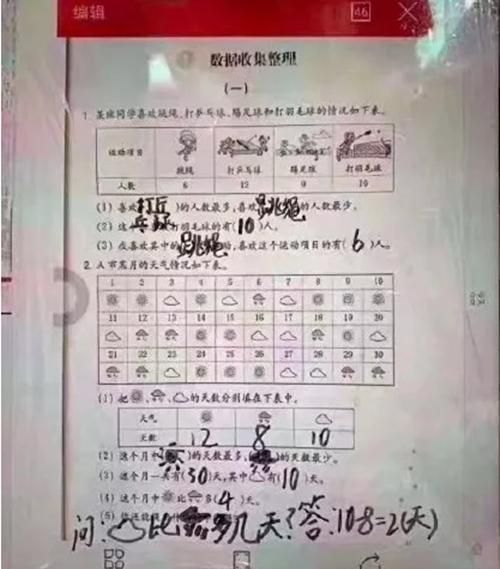 编辑
46
数据收集整理
(一)
1. 某班同学喜欢跳绳、打乒乓球、踢足球和打羽毛球的情况如下表。
运动项目 跳绳 打乒乓球 踢足球 打羽毛球
人数 6 12 9 10
(1) 喜欢(打乒乓球)的人数最多,喜欢(跳绳)的人数最少。
(2) 这 打羽毛球的有(10)人。
(3) 我喜欢其中的(跳绳)运动,喜欢这个运动项目的有(6)人。
2. A市某月的天气情况如下表。
1 2 3 4 5 6 7 8 9 10
11 12 13 14 15 16 17 18 19 20
21 22 23 24 25 26 27 28 29 30
(1) 把 、 、 的天数分别填在下表中。
天气
天数 12 8 10
(2) 这个月中( )的天数最多,( )的天数最少。
(3) 这个月一共有(30)天,其中 有(10)天。
(4) 这个月中 比 多(4)天。
(5)
问: 比 多几天?答:10-8=2(天)